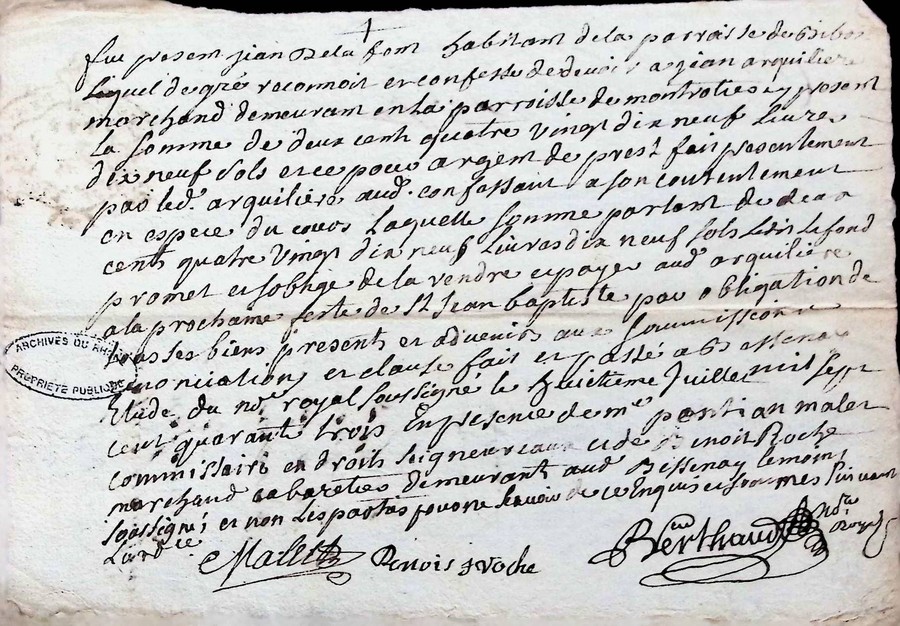 fut present jean Dela font habitant de la parroisse de Bibos
Lequel de gré reconnoit et confesse de devoir a jean arquiliere
marchand demeurant en la parroisse de montrotier cy present
La somme de deux cent quatre vingt dix neuf Livres
dix neuf sols et ce pour argent de prest fait presentement
par led. arquiliere aud. confessant a son contentement
en espece du cours Laquelle somme partant de deux
cents quatre vingt dix neuf Livres dix neuf sols ledit Lafond
promet et soblige de la rendre et payer aud arquiliere
a la prochaine feste de St Jean baptiste par obligation de
tous ses biens presents et advenirs aux soumissions
renonciations et clause fait et passé a Bessenay
Etude du nore royal soussigné le huitieme Juillet mil sept
cent quarant trois En presence de me pontian malet
commissaire en droits seigneuriaux et de Benoit Roche
marchand cabaretier demeurant aud Bessenay temoins
soussignés et non les parties pour ne scavoir de ce Enquis et sommés suivant
Lordce
Malet Benoist roche Berthaud nore Royal
ARCHIVES DU RHÔNE
PROPRIETE PUBLIQUE